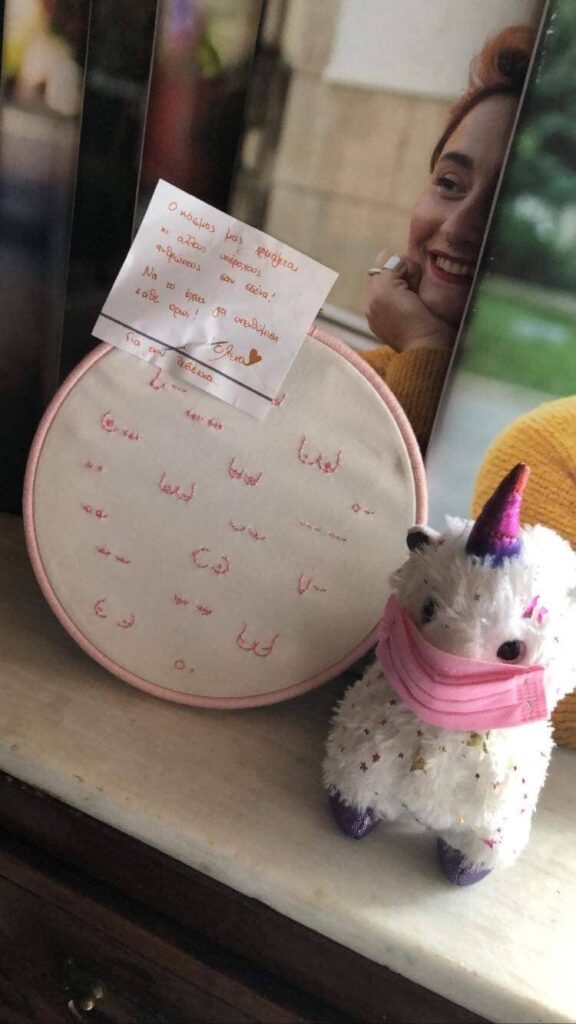 Ο κόσμος μας χρειάζεται
κι άλλους υπέροχους
ανθρώπους σαν εσένα!
Να το έχεις για υπενθύμιση
κάθε πρωί!
Έλενα
Για την